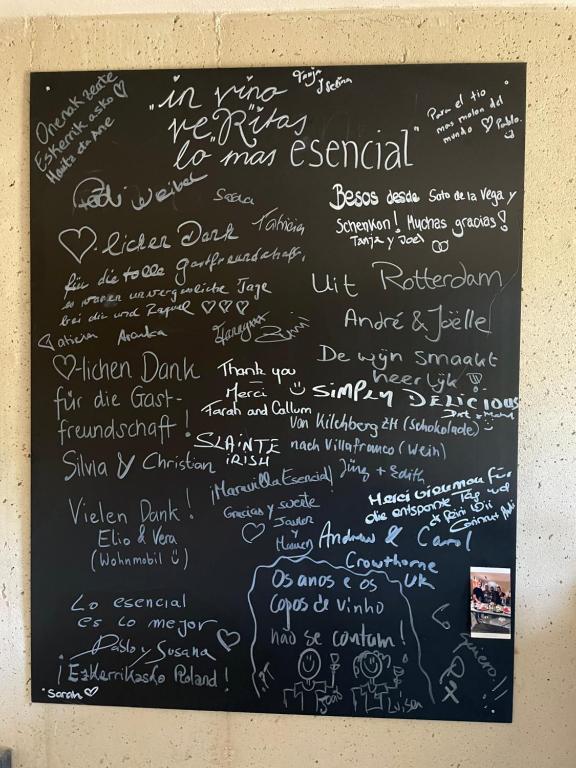 Tanja
y Selina
"in vino
veRitas
lo mas esencial"
Onenak zuete
Eskerrik asko ♡
Haritz eta Ane
Para el tio
mas molon del
mundo ♡ Pablo.
Weibel
Tatricia
♡-lichen Dank
für die tolle Gastfreundschaft,
es waren unvergessliche Tage
bei dir und Raquel ♡♡♡
Besos desde Soto de la Vega y
Schenkon! Muchas gracias!
Tanja y Joel
Uit Rotterdam
André & Joëlle
De wijn smaakt
heerlijk!
♡-lichen Dank
für die Gast-
freundschaft!
Silvia & Christian
Thank you
Merci
Farah and Callum
SLAINTE
iRISH
SiMPLY DELICIOUS
Von Kilchberg ZH (Schokolade)
nach Villafranco (Wein)
Jürg + Edith
¡Maravilla Esencial!
Gracias y suerte
Javier
y
♡
Merci vieumau für
die entspannte Tag und
Vielen Dank!
Elio & Vera
(Wohnmobil)
Andrew & Carol
Crowthorne
UK
Os anos e os
copos de vinho
não se contam!
PT
Luisa
Lo esencial
es lo mejor
Pablo y Susana ♡
¡Ezkerrikasko Roland!
Sarah ♡
quiero!!